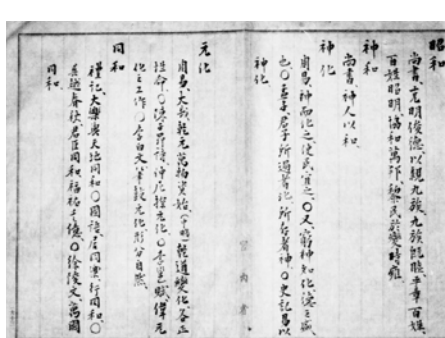 昭和
尚書、克明俊德、以親九族、九族既睦、平章百姓、
百姓昭明、協和萬邦、黎民於變時雍
神和
尚書、神人以和、
神化
周易、神而化之、使民宜之、〇又、窮神知化、德之盛
也、〇孟子、君子所過者化、所存者神、〇史記、昌以
神化、
元化
周易、大哉乾元、萬物資始、乾道變化、各正
性命、〇 元化、〇 賦、偉元
化之 〇李白文、 元化 分自然、
同和
禮記、大樂與天地同和、〇國語、居同樂、行同和、〇
吳越春秋、君臣同和、福祐千億、〇徐陵文、萬國
同和、
宮內省